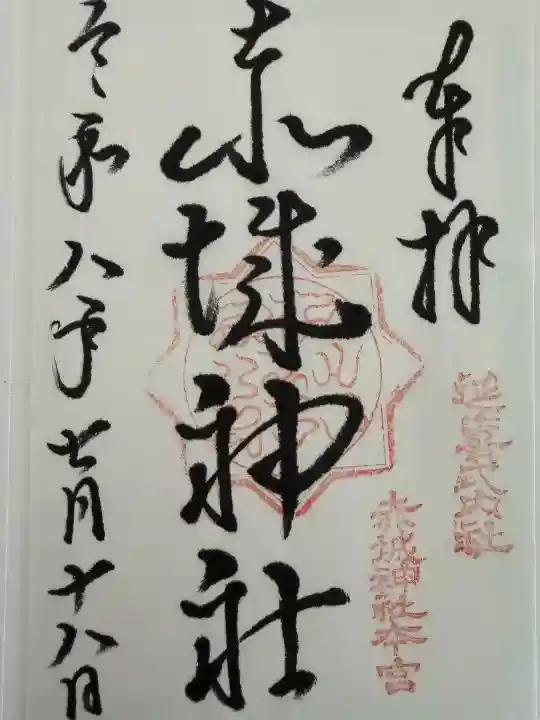 奉拝
赤城神社本宮
赤城神社
令和八年七月十八日